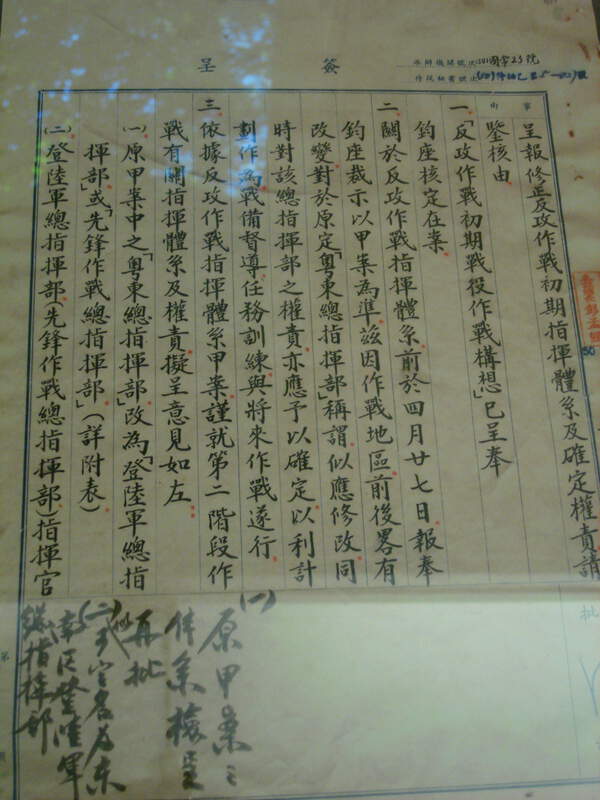 簽呈
事由
呈報修正反攻作戰初期指揮體系及確定權責請
鑒核由
一、「反攻作戰初期戰役作戰構想」已呈奉
鈞座核定在案。
二、關於反攻作戰指揮體系，前於四月廿七日報奉
鈞座裁示以甲案為準，茲因作戰地區前後畧有
改變，對於原定「粵東總指揮部」稱謂，似應修改，同
時對該總指揮部之權責，亦應予以確定，以利計
劃作為、戰備督導、任務訓練與將來作戰遂行。
三、依據反攻作戰指揮體系甲案，謹就第二階段作
戰有關指揮體系及權責，擬呈意見如左：
㈠原甲案中之「粵東總指揮部」，改為「登陸軍總指
揮部」或「先鋒作戰總指揮部」。（詳附表）
㈡登陸軍總指揮部（先鋒作戰總指揮部）指揮官
批
(一)原甲案之
体系核呈
再批
(二)
登陸軍
總指揮部